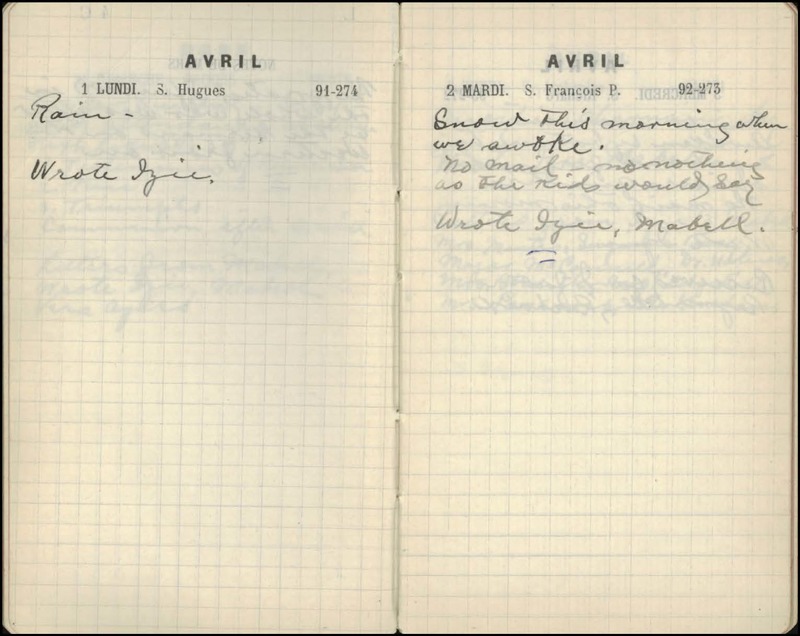 AVRIL
1 LUNDI. S. Hugues 91-274
Rain -
Wrote Izie.
AVRIL
2 MARDI. S. François P. 92-273
Snow this morning when
we awoke.
No mail - no nothing
as the kids would say
Wrote Izie, Mabell.